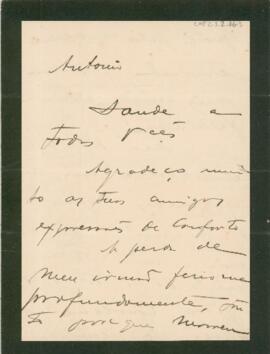 Antonio
Saude a
Todos Vcês
Agradeço mui
to as tuas amigas
expressões de conforto
A perda de
meu irmão feriu-me
profundamente,
porque morreu